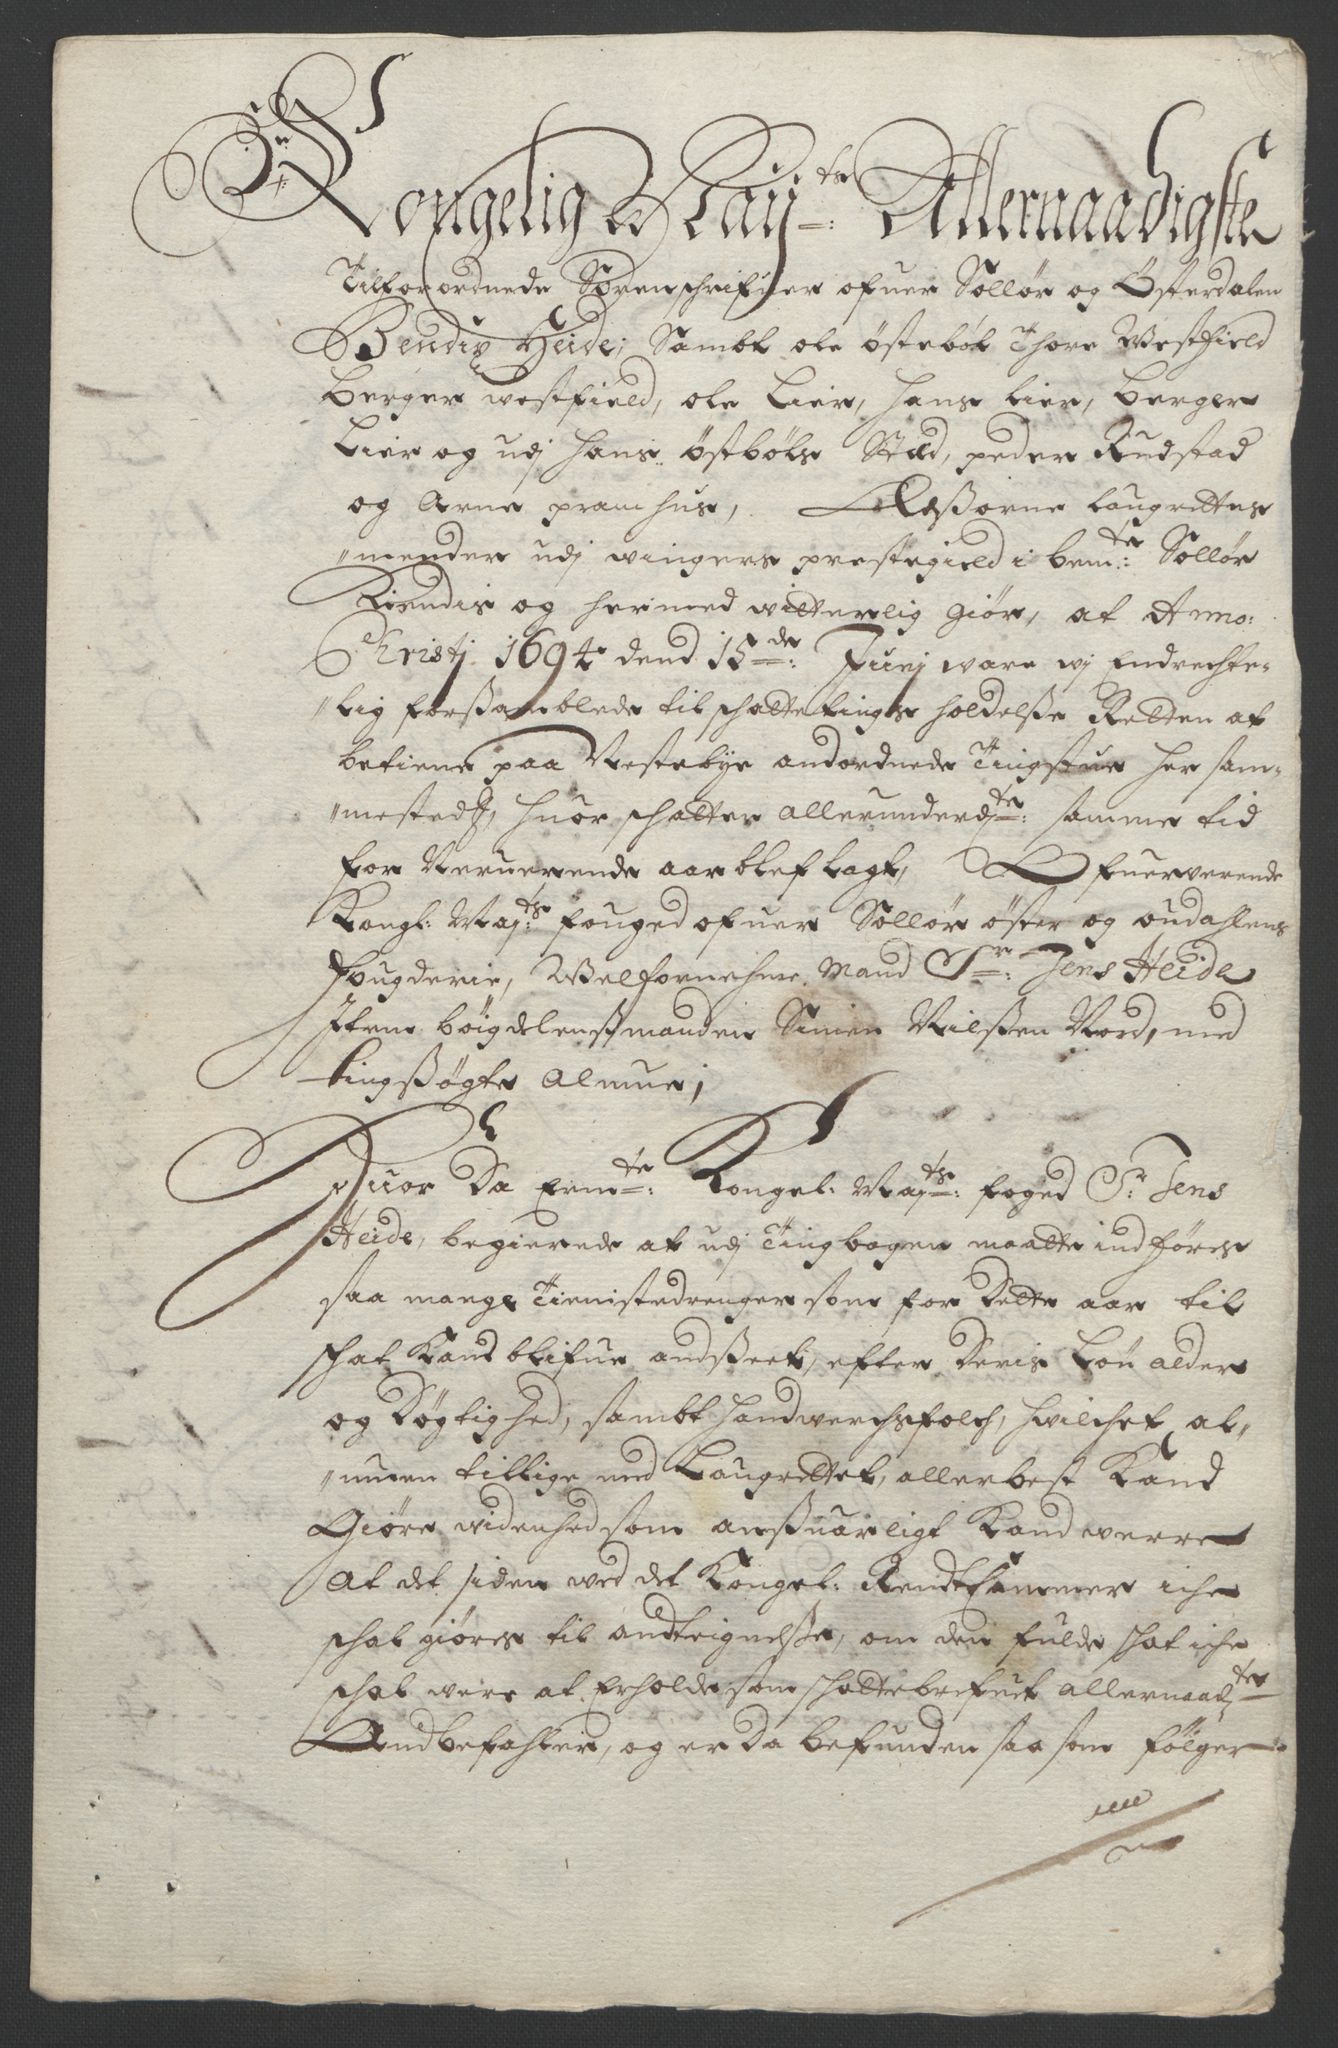 Kongelig May:ts Allernaadigste
Tilforordnede Sorenschrifuer ofuer Sollør og Österdalen
Bendix Heide; Sambt ole östebøl Thore Westfield
Berger westfield, ole Lier, hans Lier, berger
Lier og udj hans östbøls Stæd, peder Rudstad
og Arne pramhus, Edsßorne Laugrettes
"mender udj wingers prestegield i bemte: Sollør
Kiendis og hermed witterlig giør, at Anno:
Christj 1694 dend 15de: Junj ware wj Endrechte-
"lig forßamblede til schattetings holdelße Retten at
betiene paa Nestebye andordnede Tingstue her sam-
"mestedtz, huor schatten allerunderdte: samme tid
for Neruerende aar blef lagt, Ofuerwerende
Kongl: Maj:ts fouged ofuer Sollør öster og oudahlens
fougderie, Welfornehme Mand Sr: Jens Heide
Item bøigdelensmanden Simen Nilßen Nord, med
tingßøgte Almue;
Huor Da Ermte: Kongel: Maj:ts foged Sr: Jens
Heide, begierede at udj Tingbogen maatte indføres
saa mange Tienistedrenger som for Dette aar til
schat Kand blifue andßeet, efter Deris Løn alder
og Døgtighed, sambt handwerchsfolch, hwilchet al-
"muen tillige med Laugrettet, allerbest Kand
Giøre widenhed som anßuarligt Kand werre
At det siden wed det Kongel: Rendtkammer iche
schal giøres til andteignelße, om den fulde schat iche
schal were at Erholde som schattebrefuet allernaadte
Andbefahler, og er Da befunden saa som følger